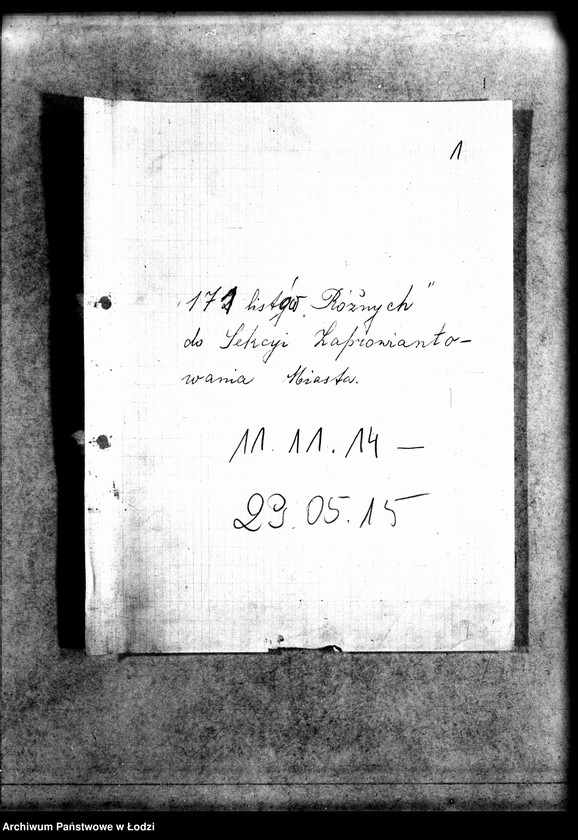 1
171 listów „Różnych"
do Sekcyi Zaprowianto-
wania Miasta.
11.11.14 —
29.05.15
Archiwum Państwowe w Łodzi